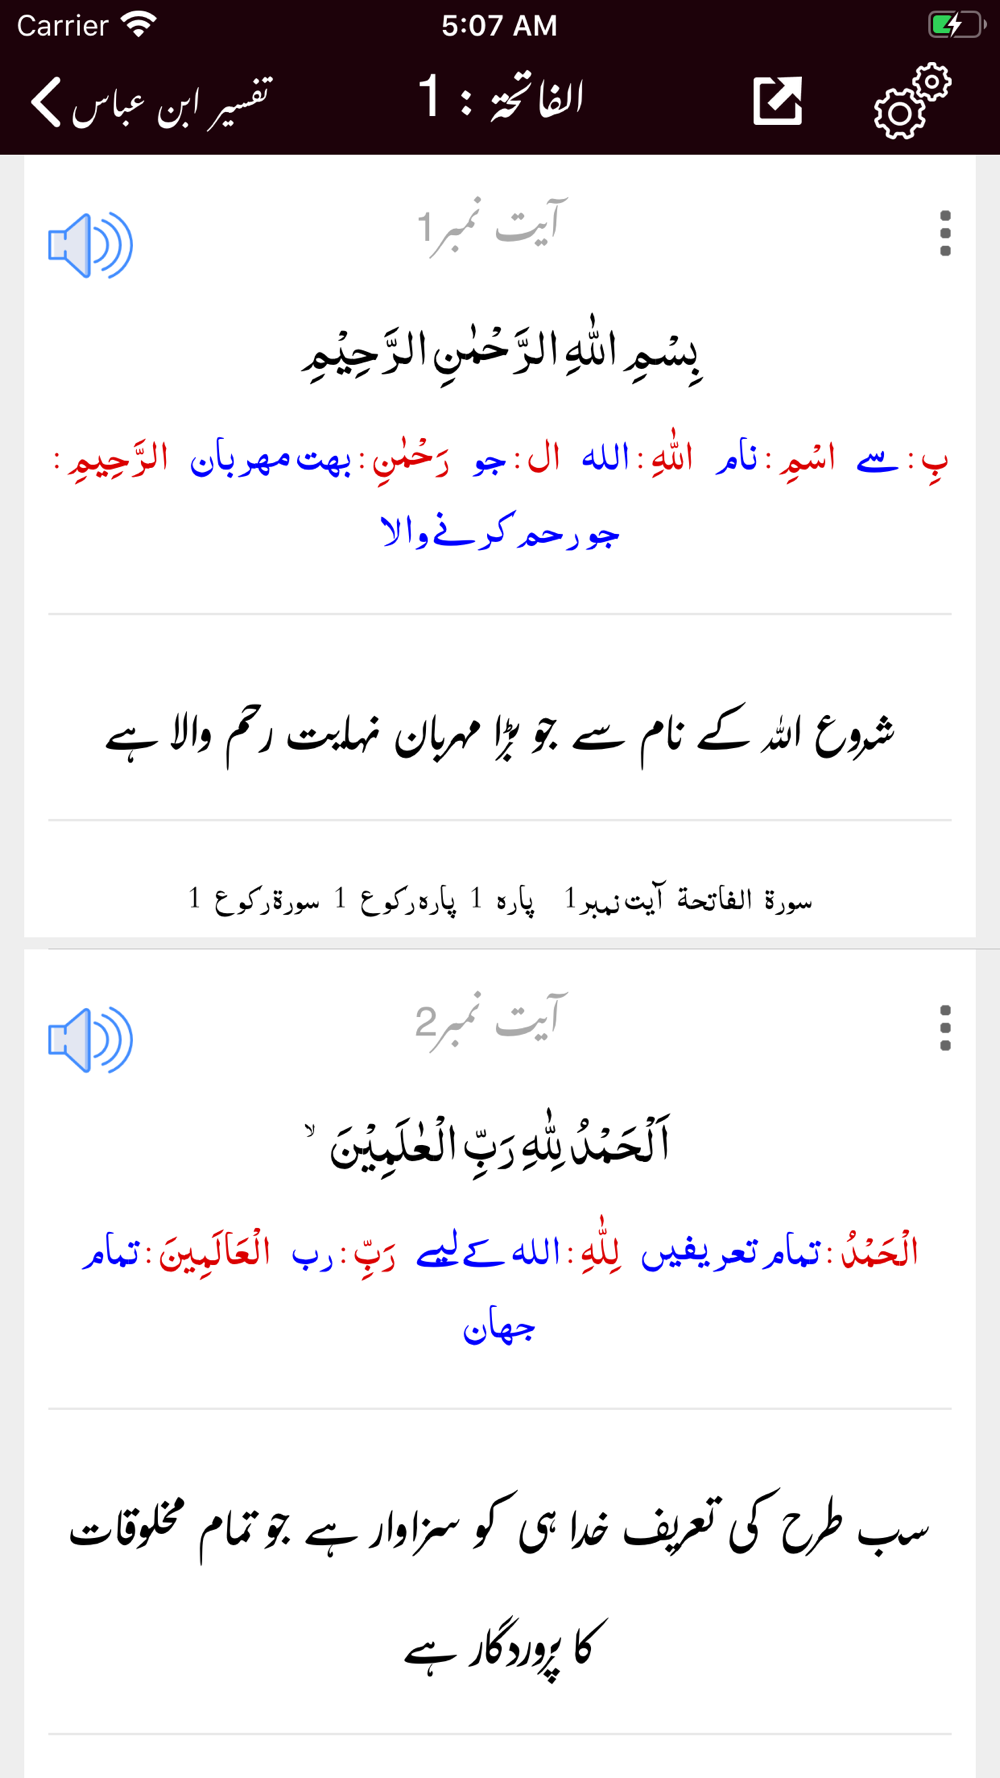 Carrier 5:07 AM
تفسیر ابن عباس الفاتحۃ : 1
آیت نمبر1
بِسْمِ اللّٰهِ الرَّحْمٰنِ الرَّحِیْمِ
بِ: سے اسْمِ: نام اللّٰهِ: الله ال: جو رَحْمٰنِ: بهت مهربان الرَّحِيمِ:
جو رحم كرنے والا
شروع اللہ کے نام سے جو بڑا مہربان نہایت رحم والا ہے
سورۃ الفاتحۃ آیت نمبر1 پارہ 1 پارہ رکوع 1 سورۃ رکوع 1
آیت نمبر2
اَلْحَمْدُ لِلّٰهِ رَبِّ الْعٰلَمِیْنَ ۙ
الْحَمْدُ: تمام تعریفیں لِلّٰهِ: الله كے لیے رَبِّ: رب الْعَالَمِينَ: تمام
جهان
سب طرح کی تعریف خدا ہی کو سزاوار ہے جو تمام مخلوقات
کا پروردگار ہے